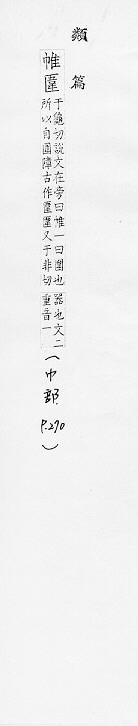 類篇
帷𠥎
于龜切說文在旁曰帷一曰圍也
所以自圍障古作𠥎𠥎又于非切
器也文二
重音一
(巾部 P.270)